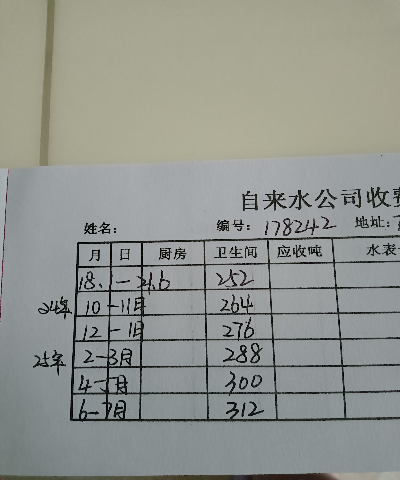 自来水公司收费
姓名: 编号: 178242 地址:
月 日 厨房 卫生间 应收吨 水表
18.1—24.6 252
24年 10—11月 264
12—1月 276
25年 2—3月 288
4—5月 300
6—7月 312